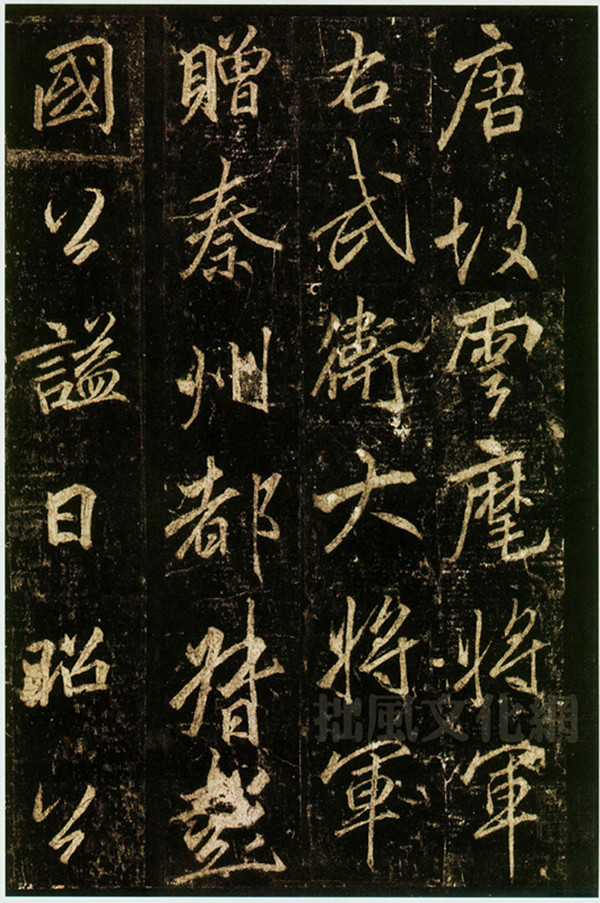 唐故雲麾將軍
右武衛大將軍
贈秦州都督彭
國公謚曰昭公
拙風文化網